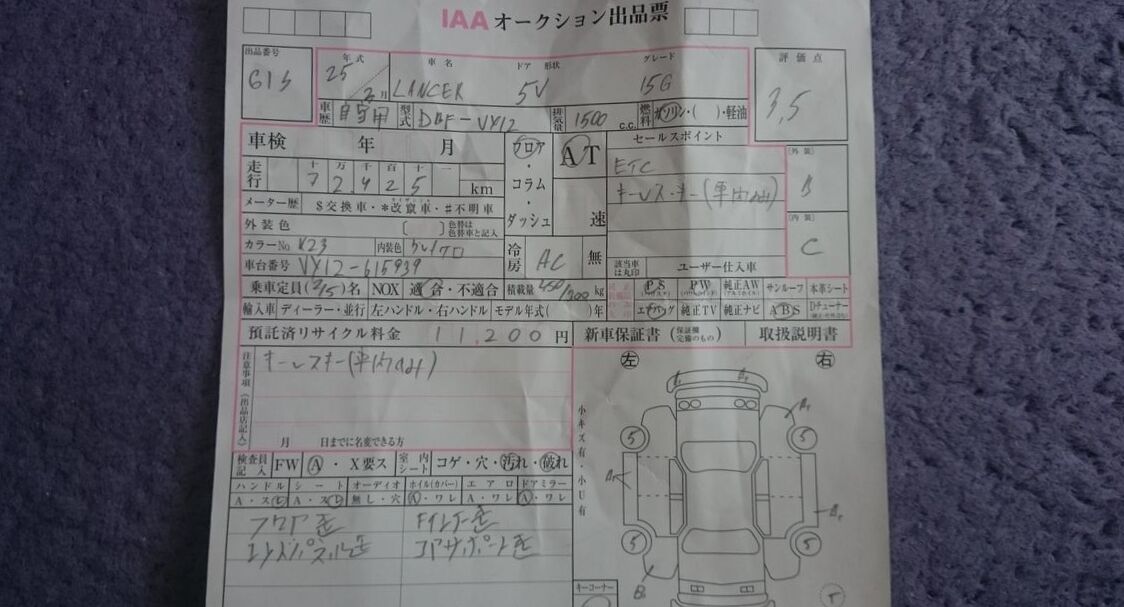 IAA オークション出品票
出品番号 年式 車名 ドア 形状 グレード 評価点
613 25 2月 LANCER 5V 15G 3,5
車歴 自家用 型式 DBF-VY12 排気量 1500 c.c. 燃料 ガソリン・( )・軽油
車検 年 月 フロア・コラム・ダッシュ AT 速 セールスポイント
走行 十 万 千 百 十 一
7 2.4 2 5 km ETC
キーレス・キー(車内有)
メーター歴 $交換車・*改竄車・#不明車
外装色 [ ] 色替は色替車と記入
カラーNo K23 内装色 グレイクロ 冷房 AC 無 該当車は丸印 ユーザー仕入車
[外装] B
[内装] C
車台番号 VY12-615939
乗車定員(2/5)名 NOX 適合・不適合 積載量 450/200 kg PS PW 純正AW サンルーフ 本革シート
輸入車 ディーラー・並行 左ハンドル・右ハンドル モデル年式( )年 エアバッグ 純正TV 純正ナビ ABS Dチューナー
預託済リサイクル料金 11,200 円 新車保証書 (保証欄完備のもの) 取扱説明書
注意事項(出品店記入) キーレスキー(車内有)
月 日までに名変できる方
検査員記入 FW A・X要ス 室内シート コゲ・穴・汚れ・破れ
ハンドル シート オーディオ ホイル(カバー) エアロ ドアミラー
A・スレ A・スレ 無し・穴 A・ワレ A・ワレ A・ワレ
左 右
小キズ有・小U有
5 5
5 5
キーコーナー